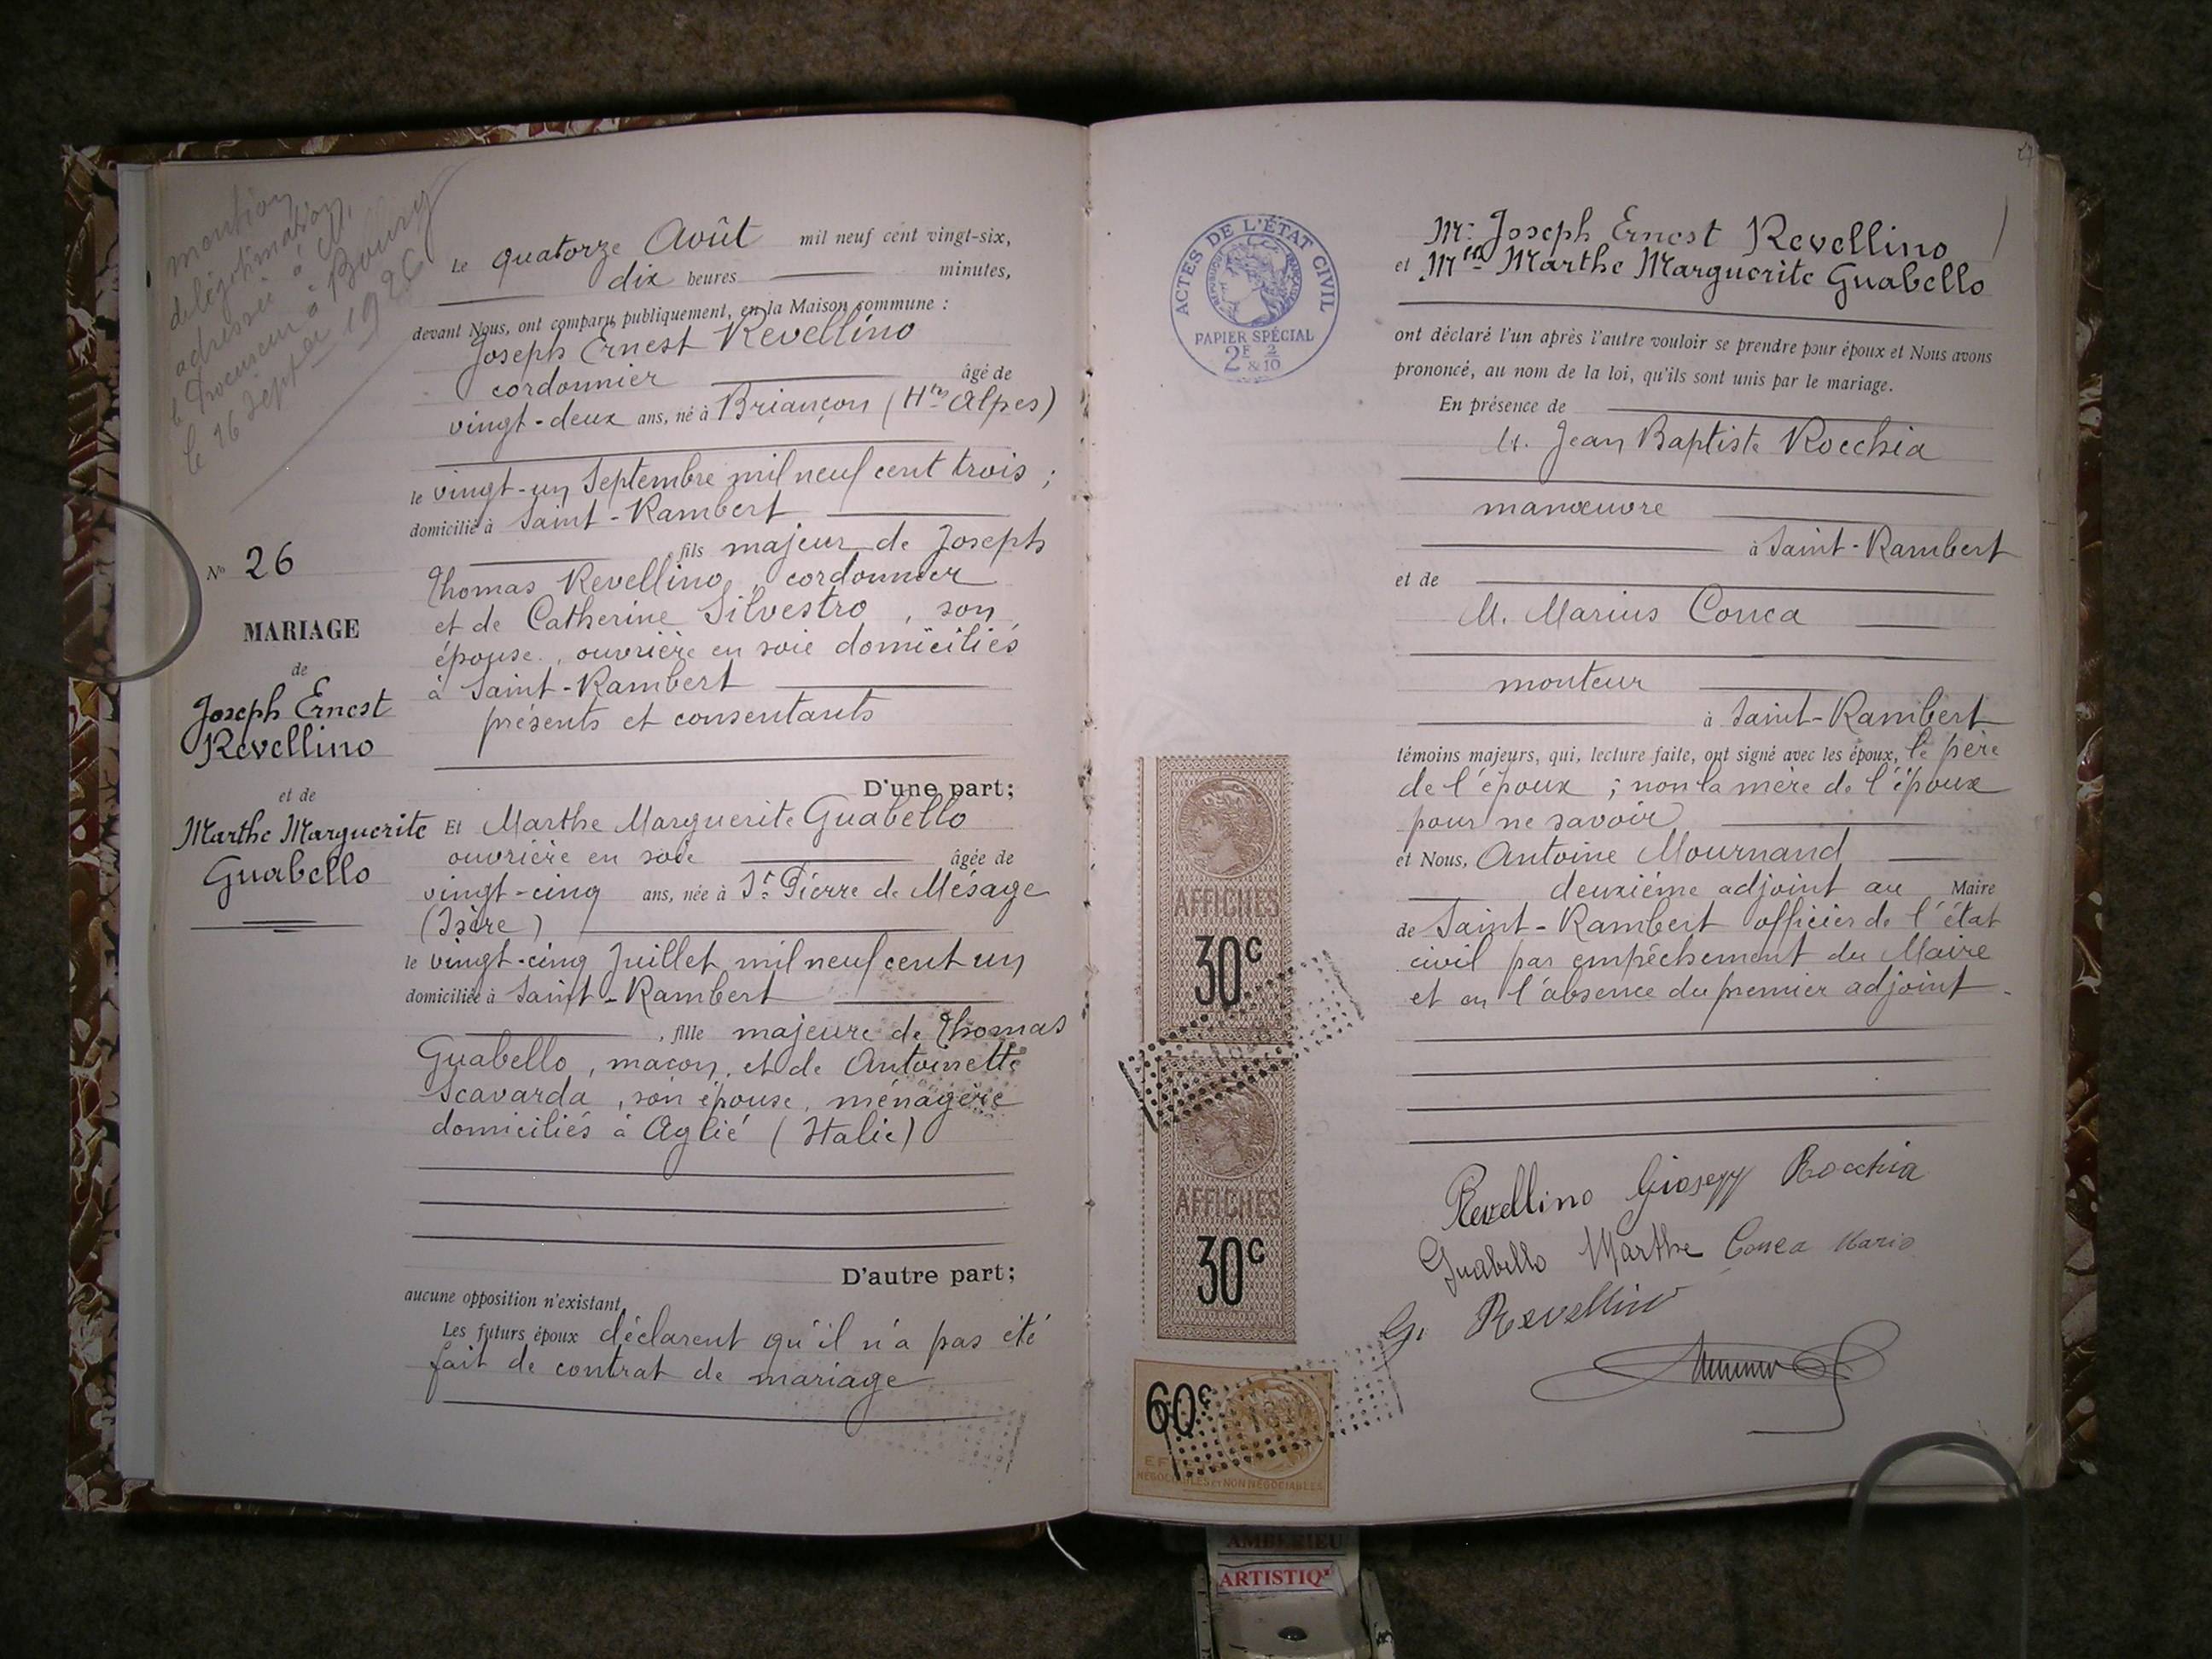 mention
de légitimation
adressée à M.
le Procureur à Bourg
le 26 Septbre 1926
Nº 26
MARIAGE
de
Joseph Ernest
Revellino
et de
Marthe Marguerite
Guabello
Le quatorze Août mil neuf cent vingt-six,
dix heures minutes,
devant Nous, ont comparu publiquement, en la Maison commune :
Joseph Ernest Revellino
cordonnier âgé de
vingt-deux ans, né à Briançon (Htes Alpes)
le vingt-un Septembre mil neuf cent trois ;
domicilié à Saint-Rambert
fils majeur de Joseph
Thomas Revellino, cordonnier
et de Catherine Silvestro, son
épouse, ouvrière en soie domiciliés
à Saint-Rambert
présents et consentants
D'une part;
Et Marthe Marguerite Guabello
ouvrière en soie âgée de
vingt-cinq ans, née à St Pierre de Mésage
(Isère)
le vingt-cinq Juillet mil neuf cent un
domiciliée à Saint-Rambert
, fille majeure de Thomas
Guabello, maçon, et de Antoinette
Scavarda, son épouse, ménagère
domiciliés à Aglié (Italie)
D'autre part;
aucune opposition n'existant.
Les futurs époux déclarent qu'il n'a pas été
fait de contrat de mariage
27
ACTES DE L'ÉTAT CIVIL
RÉPUBLIQUE FRANÇAISE
PAPIER SPÉCIAL
2F & 2/10
Mr Joseph Ernest Revellino
et Mlle Marthe Marguerite Guabello
ont déclaré l'un après l'autre vouloir se prendre pour époux et Nous avons
prononcé, au nom de la loi, qu'ils sont unis par le mariage.
En présence de
M. Jean Baptiste Rocchia
manœuvre
à Saint-Rambert
et de
M. Marius Conca
monteur
à Saint-Rambert
témoins majeurs, qui, lecture faite, ont signé avec les époux, le père
de l'époux ; non la mère de l'époux
pour ne savoir
et Nous, Antoine Mournand
deuxième adjoint au Maire
de Saint-Rambert officier de l'état
civil par empêchement du Maire
et en l'absence du premier adjoint.
AFFICHES
30c
AFFICHES
30c
60c
EFFETS
NÉGOCIABLES ET NON NÉGOCIABLES
Revellino Rocchia
Guabello Marthe Conca Mario
G. Revellino
AMBERIEU
ARTISTIQ